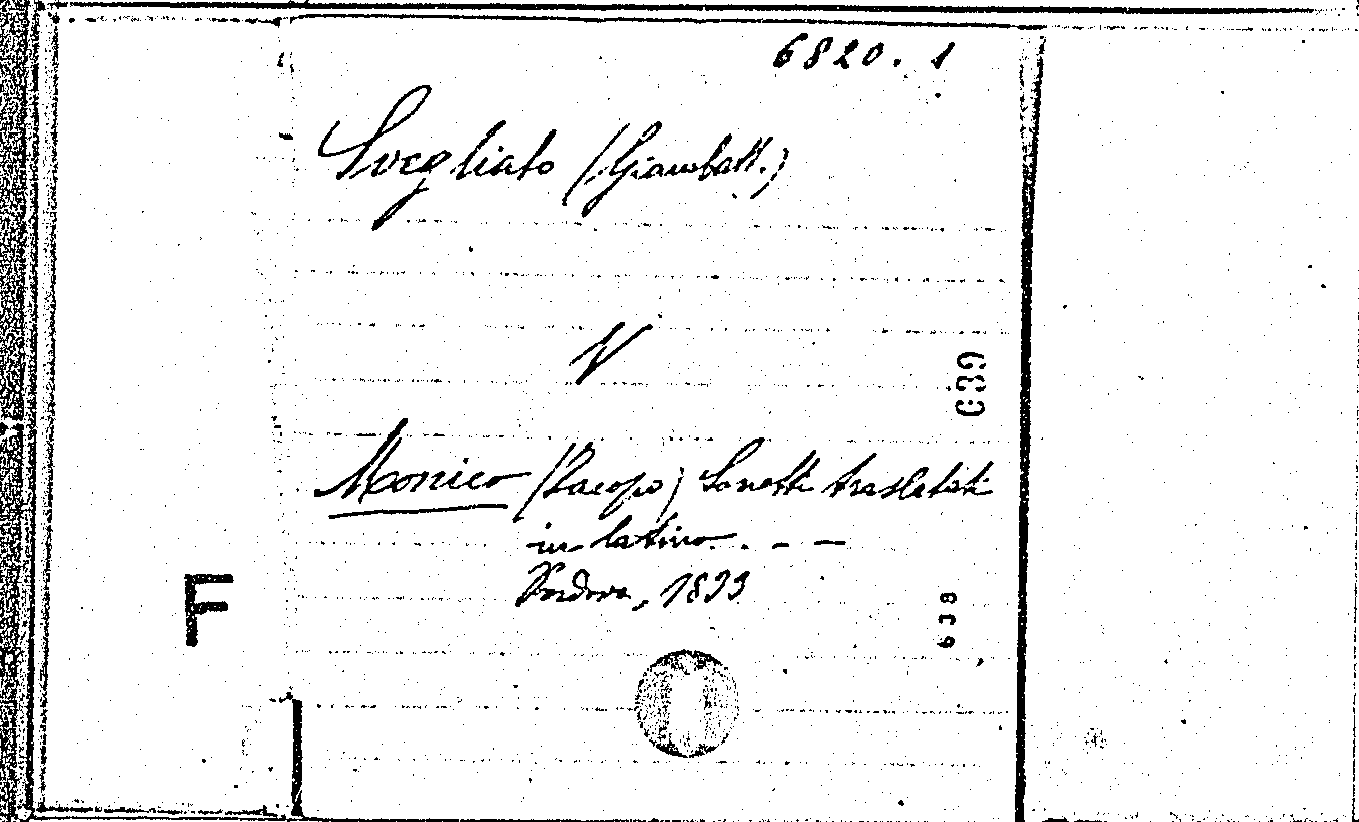 6820. 1
Svegliato (Giambatt.)
V
639
Monico (Jacopo) Sonetti traslatati
in latino. . - -
Padova, 1833
F
638